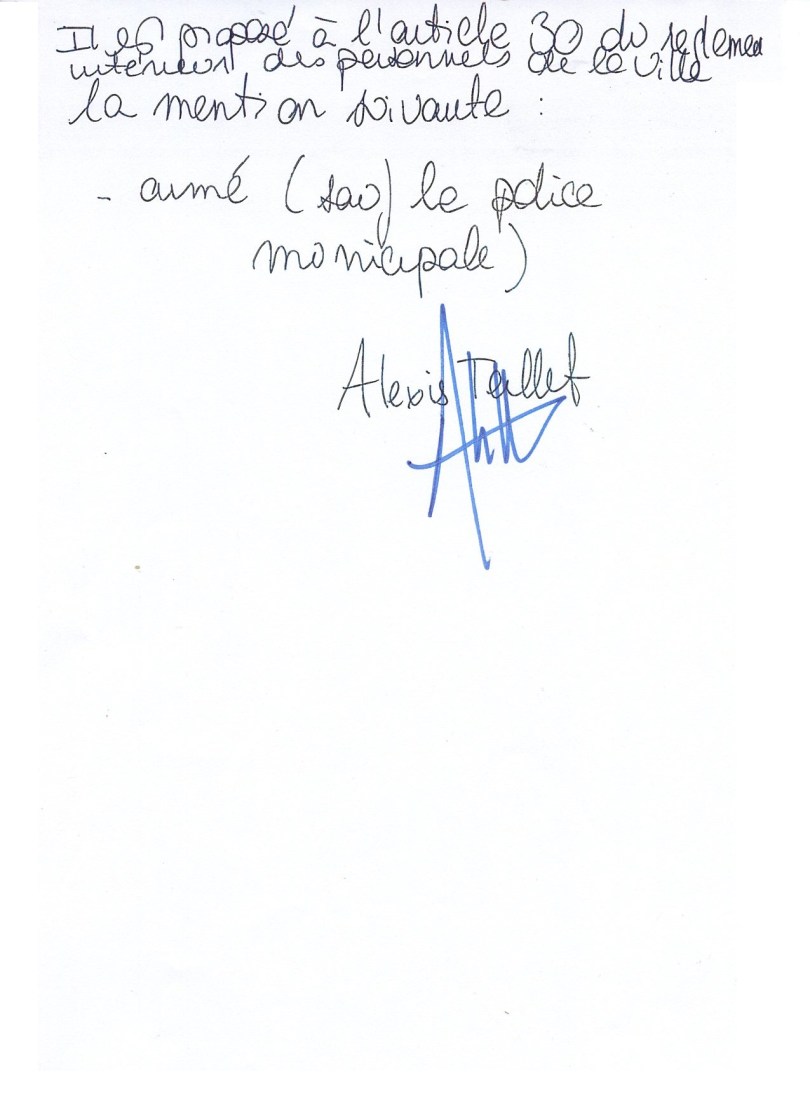 Il est proposé à l'article 30 du reglement
interieur des personnels de la ville
la mention suivante :
- armé (sauf la police
municipale)
Alexis Teillet